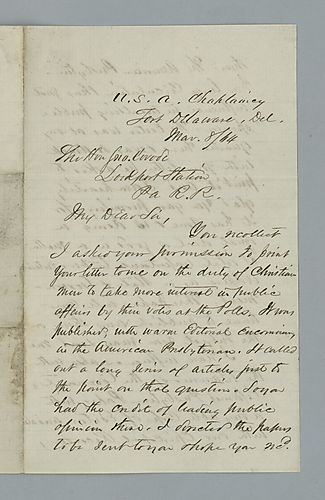 U. S. A. Chaplaincy
Fort Delaware, Del.
Mar. 8/64
The Hon Jno. Covode
Lockport Station
Pa R. R.
My Dear Sir,
You recollect
I asked your permission to print
your letter to me on the duty of Christian
men to take more interest in public
affairs by their votes at the Polls. It was
published, with warm Editorial
in the American Presbyterian. It called
out a long series of articles just to
the point on that question. So you
had the credit of leading public
opinion there. I directed the papers
to be sent to you & hope you recd.